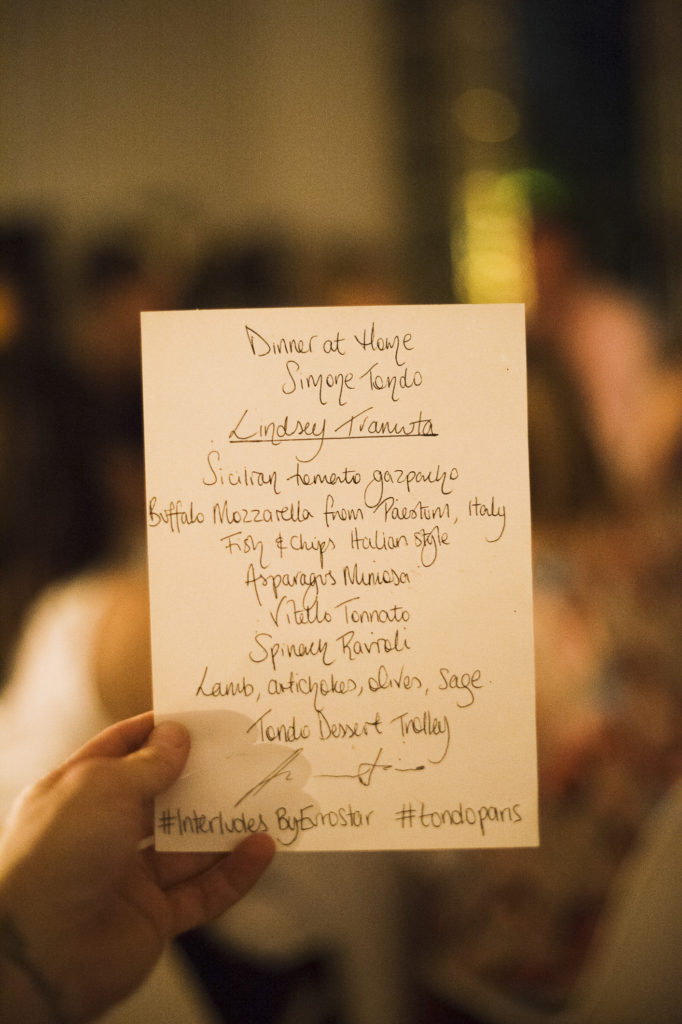 Dinner at Home
Simone Tondo
Lindsey Tramuta
Sicilian tomato gazpacho
Buffalo Mozzarella from Paestum, Italy
Fish & chips Italian style
Asparagus Mimosa
Vitello Tonnato
Spinach Ravioli
Lamb, artichokes, olives, sage.
Tondo Dessert Trolley
#Interludes ByEurostar #tondoparis